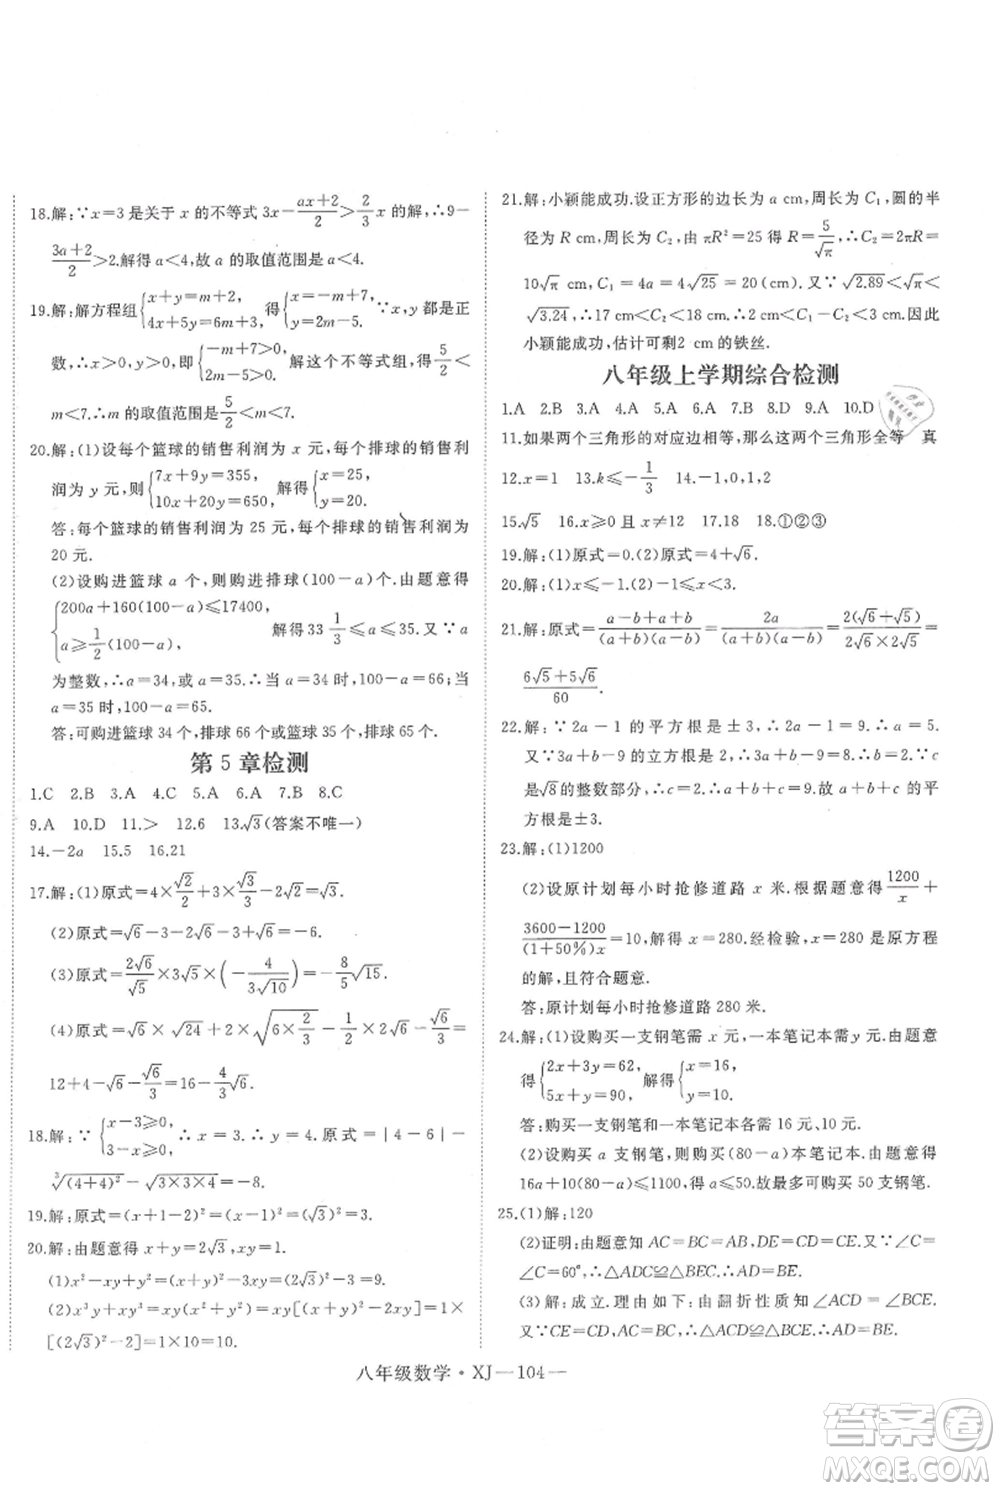 18.解:∵x=3是关于 x 的不等式 3x-(ax+2)/2>2/3 x 的解,∴9-
(3a+2)/2>2.解得 a<4,故 a 的取值范围是 a<4.
19.解:解方程组{x+y=m+2, 4x+5y=6m+3,得{x=-m+7, y=2m-5.∵x,y 都是正
数,∴x>0,y>0,即{-m+7>0, 2m-5>0.解这个不等式组,得5/2<
m<7.∴m 的取值范围是5/2<m<7.
20.解:(1)设每个篮球的销售利润为 x 元,每个排球的销售利
润为 y 元,则{7x+9y=355, 10x+20y=650,解得{x=25, y=20.
答:每个篮球的销售利润为 25 元,每个排球的销售利润为
20 元.
(2)设购进篮球 a 个,则购进排球(100-a)个.由题意得
{200a+160(100-a)≤17400, a≥1/2(100-a), 解得33 1/3≤a≤35.又∵a
为整数,∴a=34,或 a=35.当 a=34 时,100-a=66;当
a=35 时,100-a=65.
答:可购进篮球 34 个,排球 66 个或篮球 35 个,排球 65 个.
第 5 章检测
1.C 2.B 3.A 4.C 5.A 6.A 7.B 8.C
9.A 10.D 11.> 12.6 13.√3(答案不唯一)
14.-2a 15.5 16.21
17.解:(1)原式=4×√2/2+3×√2-2√2=3√2.
(2)原式=√6-3-2√6-3+√6=-6.
(3)原式=2√6/√5×3√5×(-4/(3√10))=-8/5√15.
(4)原式=√6×√24+2×√(6×2/3)-1/2×2√6-√6/3=
12+4-√6-√6/3=16-4√6/3.
18.解:∵{x-3≥0, 3-x≥0,∴x=3.∴y=4.原式=|4-6|-
∛((4+4)²)-√(3×3×4)=-8.
19.解:原式=(x+1-2)²=(x-1)²=(√3)²=3.
20.解:由题意得 x+y=2√3,xy=1.
(1)x²-xy+y²=(x+y)²-3xy=(2√3)²-3=9.
(2)x³y+xy³=xy(x²+y²)=xy[(x+y)²-2xy]=1×
[(2√3)²-2]=1×10=10.
21.解:小颖能成功.设正方形的边长为 a cm,周长为 C₁,圆的半
径为 R cm,周长为 C₂,由 πR²=25得 R=5/√π,∴C₂=2πR=
10√π cm,C₁=4a=4√25=20(cm).又∵√2.89<√π<
√3.24,∴17 cm<C₂<18 cm.∴2 cm<C₁-C₂<3cm.因此
小颖能成功,估计可剩2 cm的铁丝.
八年级上学期综合检测
1.A 2.B 3.A 4.C 5.A 6.A 7.B 8.D 9.A 10.D
11.如果两个三角形的对应边相等,那么这两个三角形全等 真
12.x=1 13.k≤-1/3 14.-1<m<1
15.√5 16.x≥0 且 x≠12 17.18 18.①②③
19.解:(1)原式=0.(2)原式=4+√6.
20.解:(1)x≤-1.(2)1≤x<3.
21.解:原式=(a-b+a+b)/((a+b)(a-b))=2a/((a+b)(a-b))=2(√6+√5)/(2√6×2√5)=
(6√5+5√6)/60.
22.解:∵2a-1 的平方根是±3,∴2a-1=9.∴a=5.
又∵3a+b-9的立方根是2,∴3a+b-9=8.∴b=2.∵c
是√8的整数部分,∴c=2.∴a+b+c=9.∴a+b+c 的平
方根是±3.
23.解:(1)1200
(2)设原计划每小时抢修道路 x 米.根据题意得1200/x+
(3600-1200)/((1+50%)x)=10,解得 x=280.经检验,x=280 是原方程
的解,且符合题意.
答:原计划每小时抢修道路 280 米.
24.解:(1)设购买一支钢笔需 x 元,一本笔记本需y元.由题意
得{2x+3y=62, 5x+y=90,解得{x=16, y=10.
答:购买一支钢笔和一本笔记本各需 16 元、10 元.
(2)设购买 a 支钢笔,则购买(80-a)本笔记本.由题意得
16a+10(80-a)≤1100.解得 a≤50.故最多可购买 50 支钢笔.
25.(1)解:120
(2)证明:由题意知 AC=BC=AD=BD,CE=CF,∠D=
∠C=60°,∴△ADC≌△BCD.∴AD=BE.
(3)解:成立.理由如下:由翻折性质知∠ACD=∠ACB.
又∵CE=CF,AC=BC,∴△ACD≌△BCE.∴AD=BE.
八年级数学·XJ—104—
答案卷
MXQE.COM